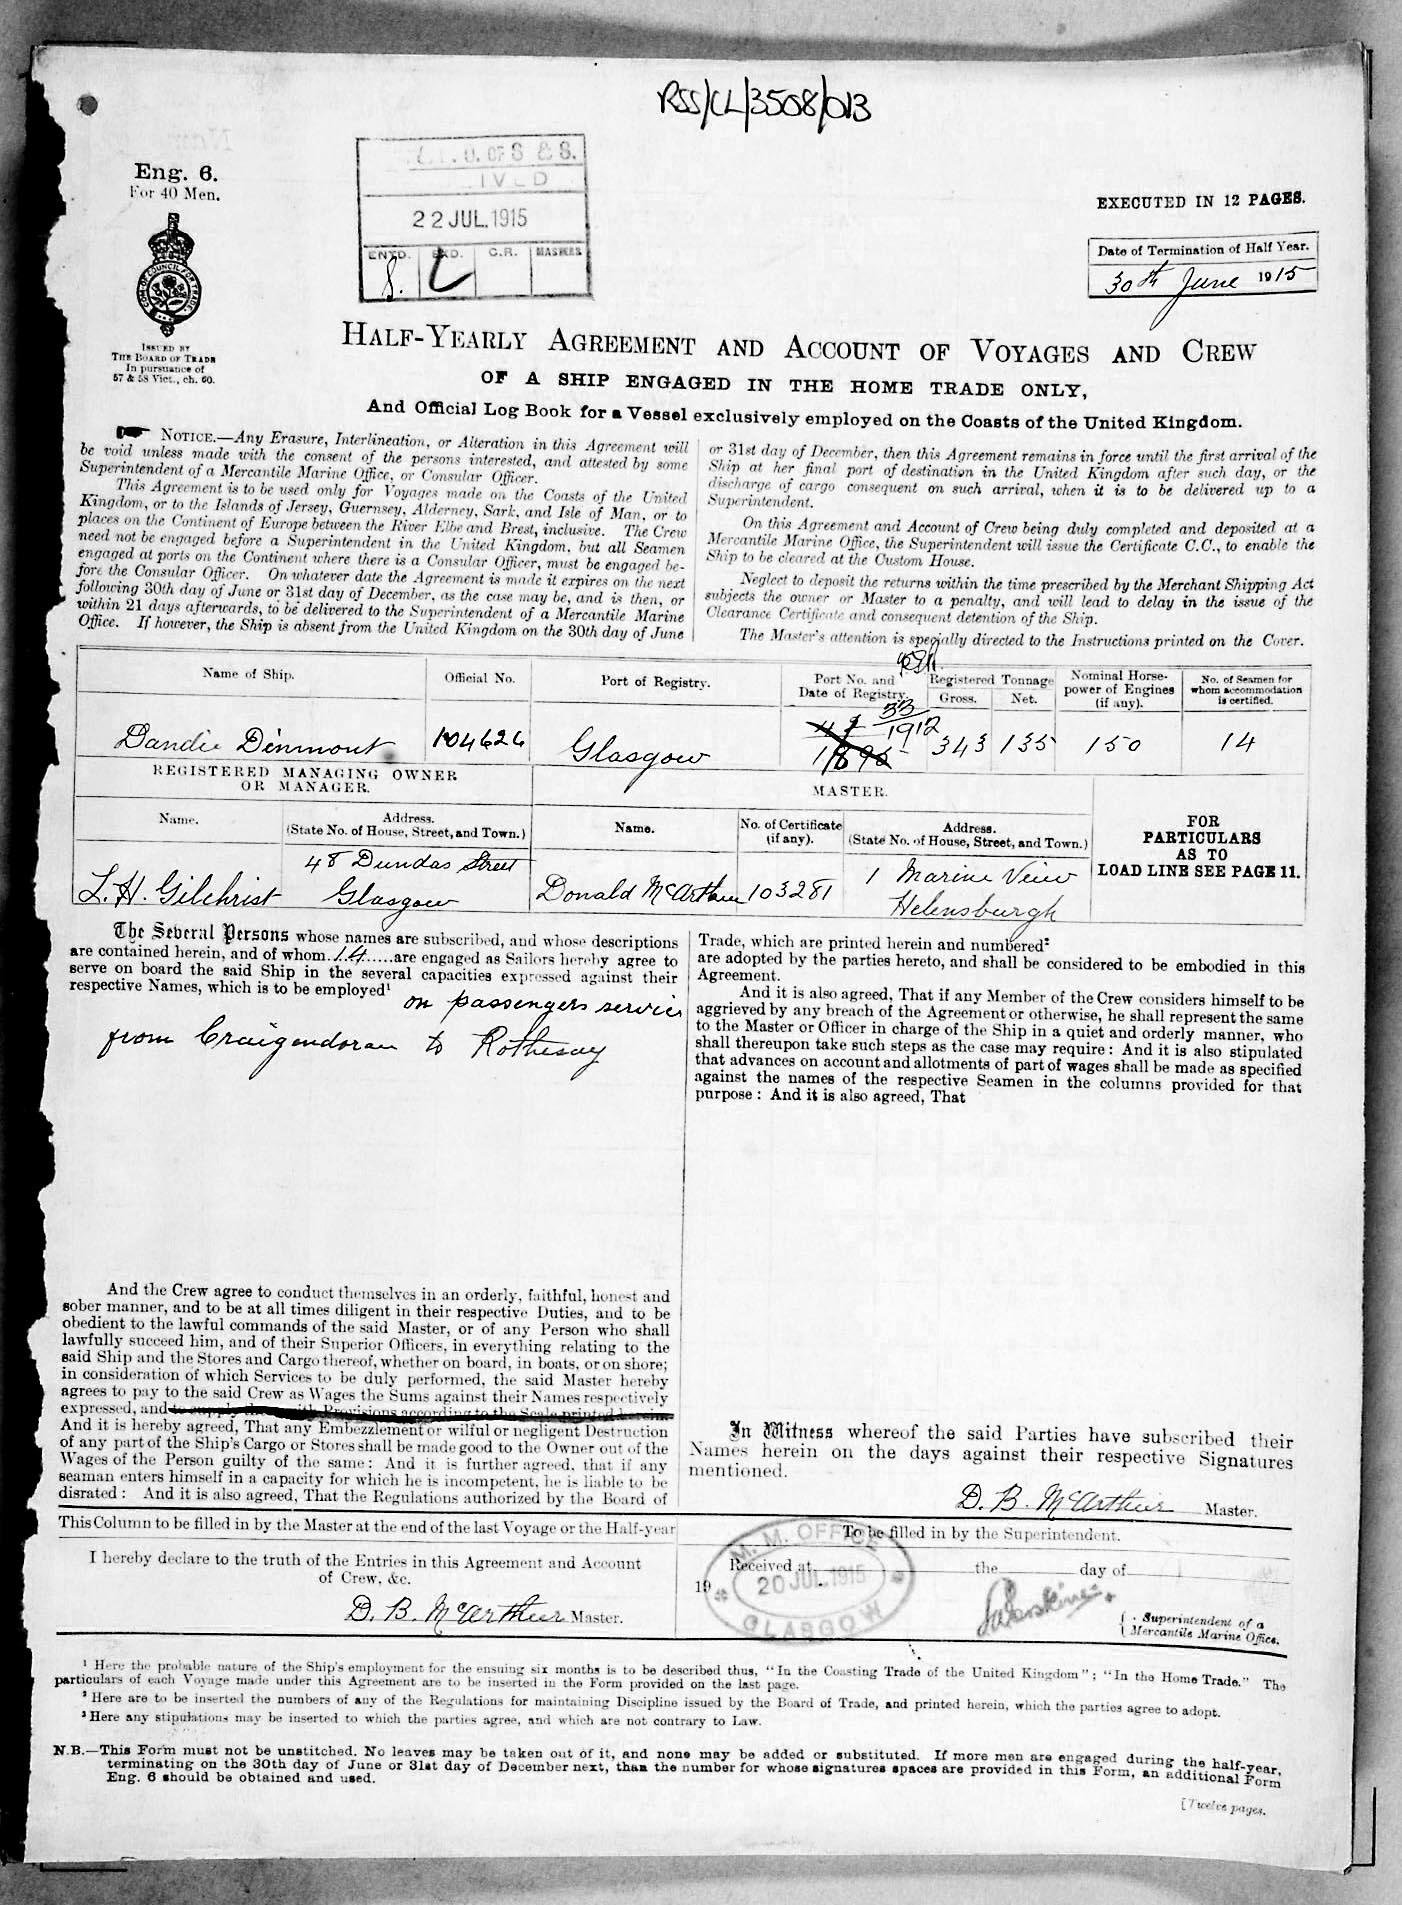 RSS/CL/3508/013
Eng. 6.
For 40 Men.
COM. OF COUNCIL FOR TRADE
ISSUED BY
THE BOARD OF TRADE
In pursuance of
57 & 58 Vict., ch. 60.
OF S & S.
22 JUL. 1915
ENTD. EXD. C.R. MASTERS
EXECUTED IN 12 PAGES.
Date of Termination of Half Year.
30th June 1915
HALF-YEARLY AGREEMENT AND ACCOUNT OF VOYAGES AND CREW
OF A SHIP ENGAGED IN THE HOME TRADE ONLY,
And Official Log Book for a Vessel exclusively employed on the Coasts of the United Kingdom.
NOTICE.—Any Erasure, Interlineation, or Alteration in this Agreement will
be void unless made with the consent of the persons interested, and attested by some
Superintendent of a Mercantile Marine Office, or Consular Officer.
This Agreement is to be used only for Voyages made on the Coasts of the United
Kingdom, or to the Islands of Jersey, Guernsey, Alderney, Sark, and Isle of Man, or to
places on the Continent of Europe between the River Elbe and Brest, inclusive. The Crew
need not be engaged before a Superintendent in the United Kingdom, but all Seamen
engaged at ports on the Continent where there is a Consular Officer, must be engaged be-
fore the Consular Officer. On whatever date the Agreement is made it expires on the next
following 30th day of June or 31st day of December, as the case may be, and is then, or
within 21 days afterwards, to be delivered to the Superintendent of a Mercantile Marine
Office. If however, the Ship is absent from the United Kingdom on the 30th day of June
or 31st day of December, then this Agreement remains in force until the first arrival of the
Ship at her final port of destination in the United Kingdom after such day, or the
discharge of cargo consequent on such arrival, when it is to be delivered up to a
Superintendent.
On this Agreement and Account of Crew being duly completed and deposited at a
Mercantile Marine Office, the Superintendent will issue the Certificate C.C., to enable the
Ship to be cleared at the Custom House.
Neglect to deposit the returns within the time prescribed by the Merchant Shipping Act
subjects the owner or Master to a penalty, and will lead to delay in the issue of the
Clearance Certificate and consequent detention of the Ship.
The Master's attention is specially directed to the Instructions printed on the Cover.
Name of Ship. Official No. Port of Registry. Port No. and Date of Registry. Registered Tonnage Gross. Net. Nominal Horse-power of Engines (if any). No. of Seamen for whom accommodation is certified.
33/1912
Dandie Dinmont 104626 Glasgow 1895 343 135 150 14
REGISTERED MANAGING OWNER
OR MANAGER.
MASTER.
Name. Address. (State No. of House, Street, and Town.) Name. No. of Certificate (if any). Address. (State No. of House, Street, and Town.)
FOR
PARTICULARS
AS TO
LOAD LINE SEE PAGE 11.
L. H. Gilchrist 48 Dundas Street Glasgow Donald McArthur 103281 1 Marine View Helensburgh
The Several Persons whose names are subscribed, and whose descriptions
are contained herein, and of whom 14 are engaged as Sailors hereby agree to
serve on board the said Ship in the several capacities expressed against their
respective Names, which is to be employed¹
on passengers service
from Craigendoran to Rothesay
And the Crew agree to conduct themselves in an orderly, faithful, honest and
sober manner, and to be at all times diligent in their respective Duties, and to be
obedient to the lawful commands of the said Master, or of any Person who shall
lawfully succeed him, and of their Superior Officers, in everything relating to the
said Ship and the Stores and Cargo thereof, whether on board, in boats, or on shore;
in consideration of which Services to be duly performed, the said Master hereby
agrees to pay to the said Crew as Wages the Sums against their Names respectively
expressed, and to supply them with Provisions according to the Scale printed herein.
And it is hereby agreed, That any Embezzlement or wilful or negligent Destruction
of any part of the Ship's Cargo or Stores shall be made good to the Owner out of the
Wages of the Person guilty of the same: And it is further agreed, that if any
seaman enters himself in a capacity for which he is incompetent, he is liable to be
disrated: And it is also agreed, That the Regulations authorized by the Board of
Trade, which are printed herein and numbered²
are adopted by the parties hereto, and shall be considered to be embodied in this
Agreement.
And it is also agreed, That if any Member of the Crew considers himself to be
aggrieved by any breach of the Agreement or otherwise, he shall represent the same
to the Master or Officer in charge of the Ship in a quiet and orderly manner, who
shall thereupon take such steps as the case may require: And it is also stipulated
that advances on account and allotments of part of wages shall be made as specified
against the names of the respective Seamen in the columns provided for that
purpose: And it is also agreed, That
In Witness whereof the said Parties have subscribed their
Names herein on the days against their respective Signatures
mentioned.
D. B. McArthur Master.
This Column to be filled in by the Master at the end of the last Voyage or the Half-year
I hereby declare to the truth of the Entries in this Agreement and Account
of Crew, &c.
D. B. McArthur Master.
To be filled in by the Superintendent.
Received at the day of
19
M. M. OFFICE
20 JUL. 1915
GLASGOW
Superintendent of a
Mercantile Marine Office.
¹ Here the probable nature of the Ship's employment for the ensuing six months is to be described thus, "In the Coasting Trade of the United Kingdom"; "In the Home Trade." The
particulars of each Voyage made under this Agreement are to be inserted in the Form provided on the last page.
² Here are to be inserted the numbers of any of the Regulations for maintaining Discipline issued by the Board of Trade, and printed herein, which the parties agree to adopt.
³ Here any stipulations may be inserted to which the parties agree, and which are not contrary to Law.
N.B.—This Form must not be unstitched. No leaves may be taken out of it, and none may be added or substituted. If more men are engaged during the half-year,
terminating on the 30th day of June or 31st day of December next, than the number for whose signatures spaces are provided in this Form, an additional Form
Eng. 6 should be obtained and used.
[Twelve pages.